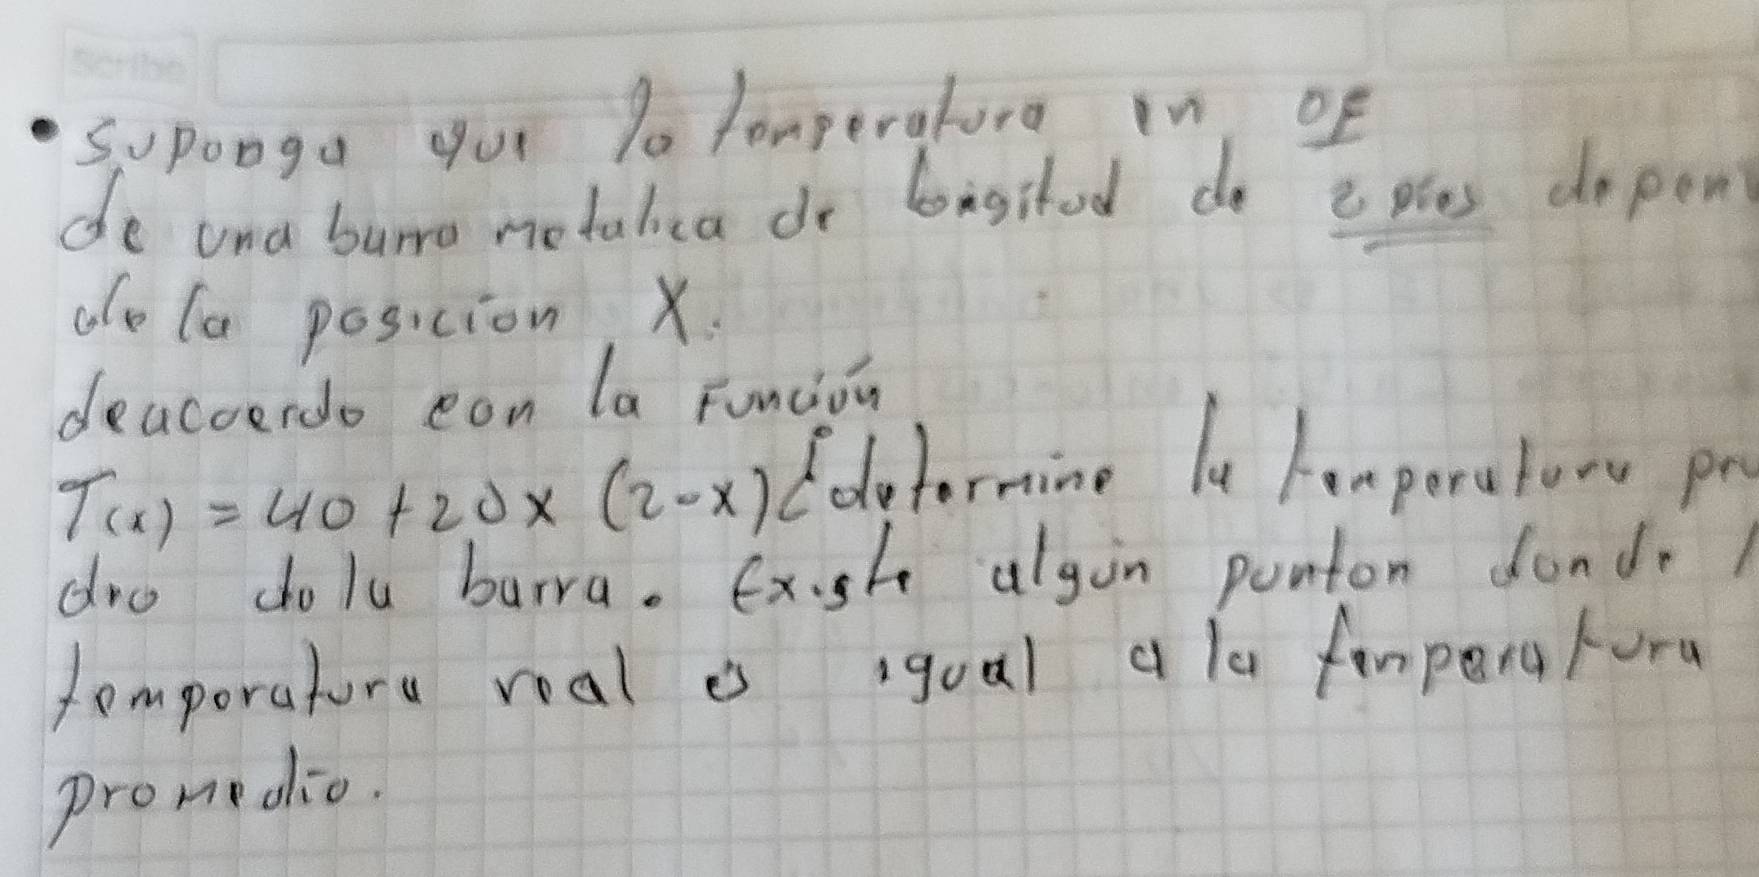 Scribe
• Suponga que la temperatura en °F
de una barra metalica de longitud de 2 pies depen
de la posicion X.
deacuerdo con la Función
T(x) = 40 + 20x (2-x) determine la temperatura pro
dio de la barra. Existe algún punton donde l
temperatura real es igual a la temperatura
promedio.